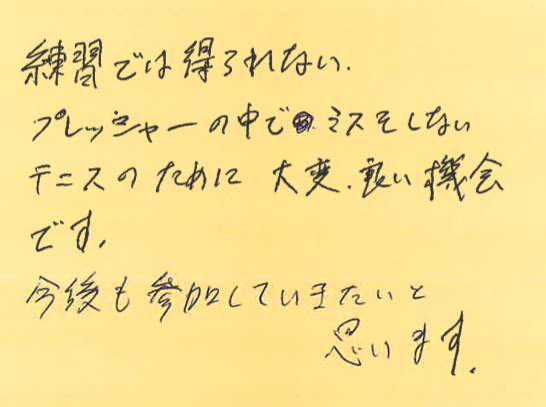 練習では得られない、
プレッシャーの中でミスをしない
テニスのために 大変、良い機会
です。
今後も参加していきたいと
思います。